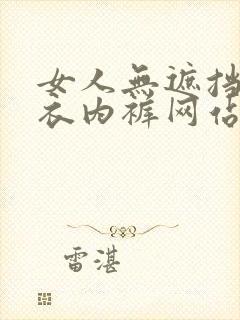 女人無遮挡
衣内裤网佔
雷湛